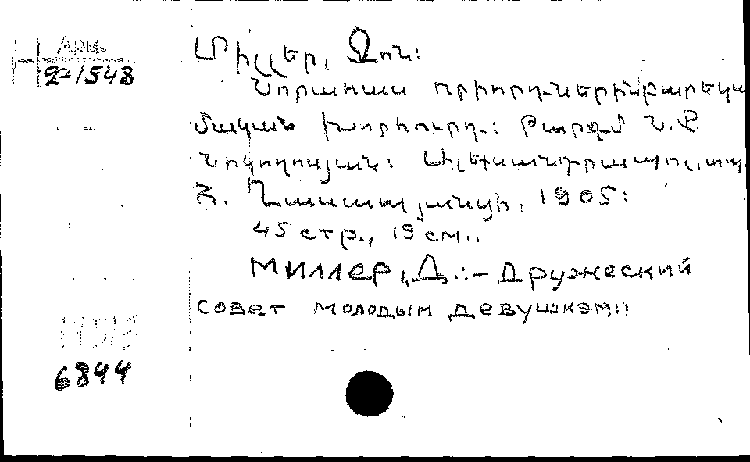 Арм.
H 2-1543
Միլլեր, Ջոն:
Նորահաս օրիորդներին բարեկա
մական խորհուրդ: Թարգմ Ն.Ք
Աղեքսանդրապոլ, տպ.
1905:
45 стр., 19 см.,
Миллер, Д. :- Дружеский
совет молодым девушкам
6844